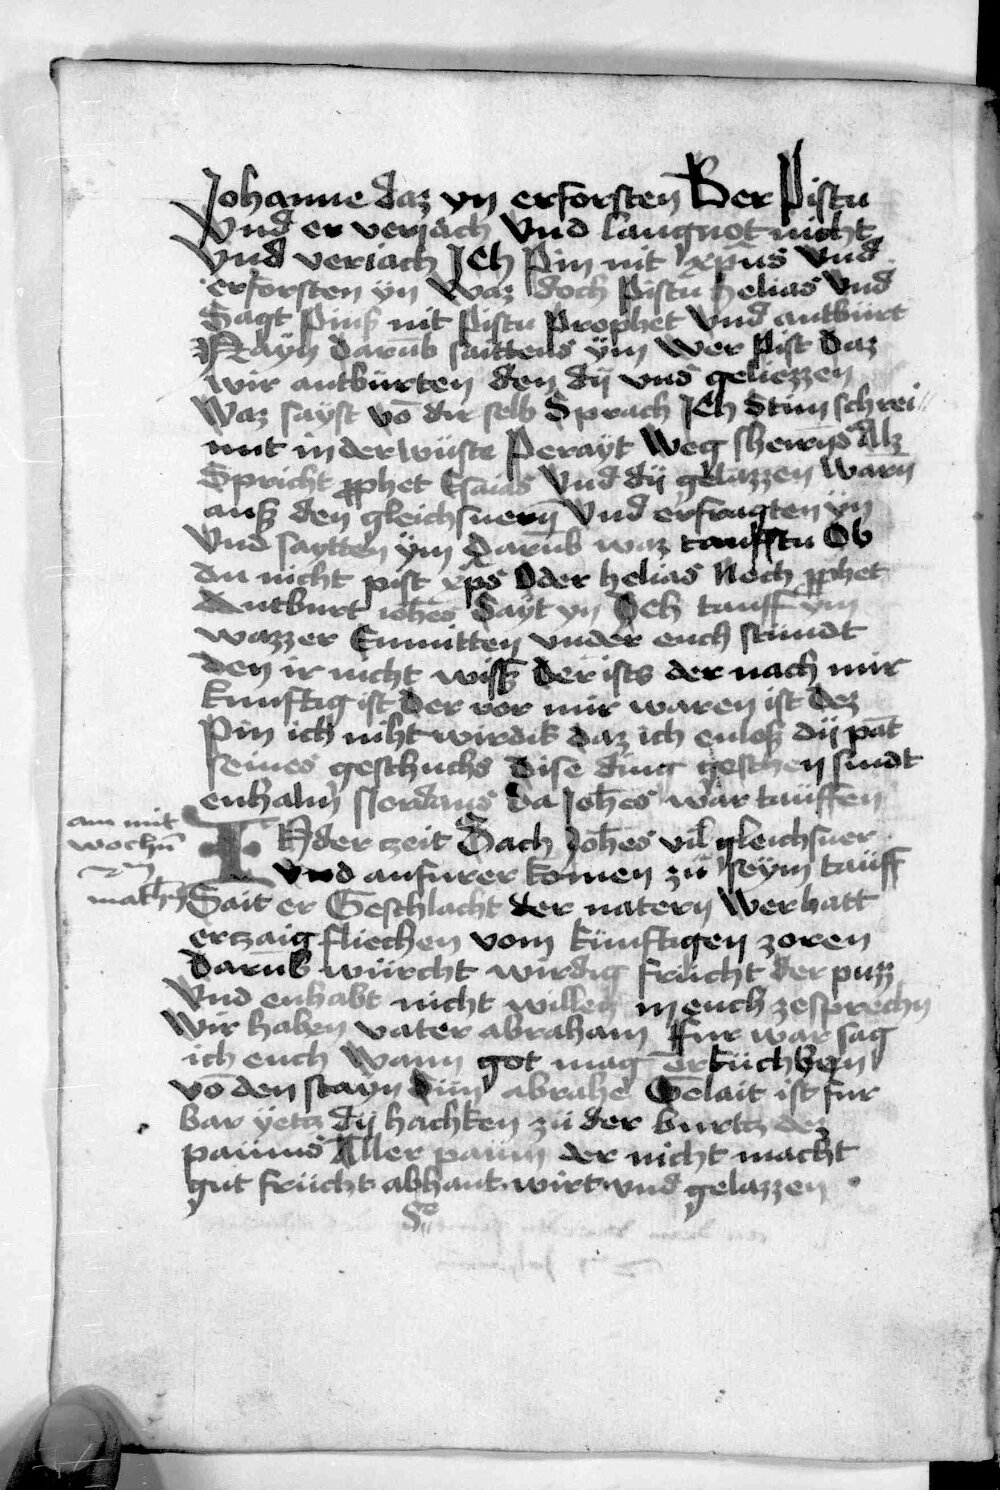 Johanne daz yn erforsten Wer Pistu
Vnd er veriach Vnd laugnot nicht
Vnd veriach Ich Pin nit xp̄us Vnd
erforsten ÿn Waz doch Pistu helias Vnd
Sagt Pinß nit Pistu Prophet Vnd antbürt
Nayn darūb saittens ÿm Wer Pist daz
wir antbürten den dÿ vns geliezzen
Waz sayst vō dir selb Sprach Ich Stim schrei
unt in der wüste Perayt Weg Alz
Spricht ꝓphet Esaias Vnd dÿ gelazzen warn
auß den gleichsnern̄ Vnd erfragten ÿn
Vnd saytten ÿm Darūb waz tauffstu Ob
du nicht pist xp̄s Oder helias Noch ꝓphet
Antburt ioh̄es Sayt yn Ich tauff ym
wazzer Enmitten vnder euch stündt
den ir nicht wißt Der ists der nach mir
kunftig ist Der vor mir waren ist Dez
Pin ich niht wirdik daz ich enloß dÿ pāt
seines geschuchs Dise ding geschen sindt
enhalm Jordans Da Joh̄es war tauffen
am mit
wochn̄
math
IN der czeit Sach Joh̄es vil gleichsner
vnd anfurer komen zü seym tauff
Sait er Geschlacht der natern Wer hatt
erczaig fliechen vom künftigen zoren
Darūb würcht wirdig frücht der puzz
Vnd enhabt nicht willen in euch zesprechn
Wir haben vater abraham Fur war sag
ich euch Wann got mag erkücken
vō den stayn Sün abrahe Gelait ist fur
bar yetz dÿ hachken zü der burtz dez
paums Aller paum der nicht macht
gut frücht abhaut wirt vnd gelazzen